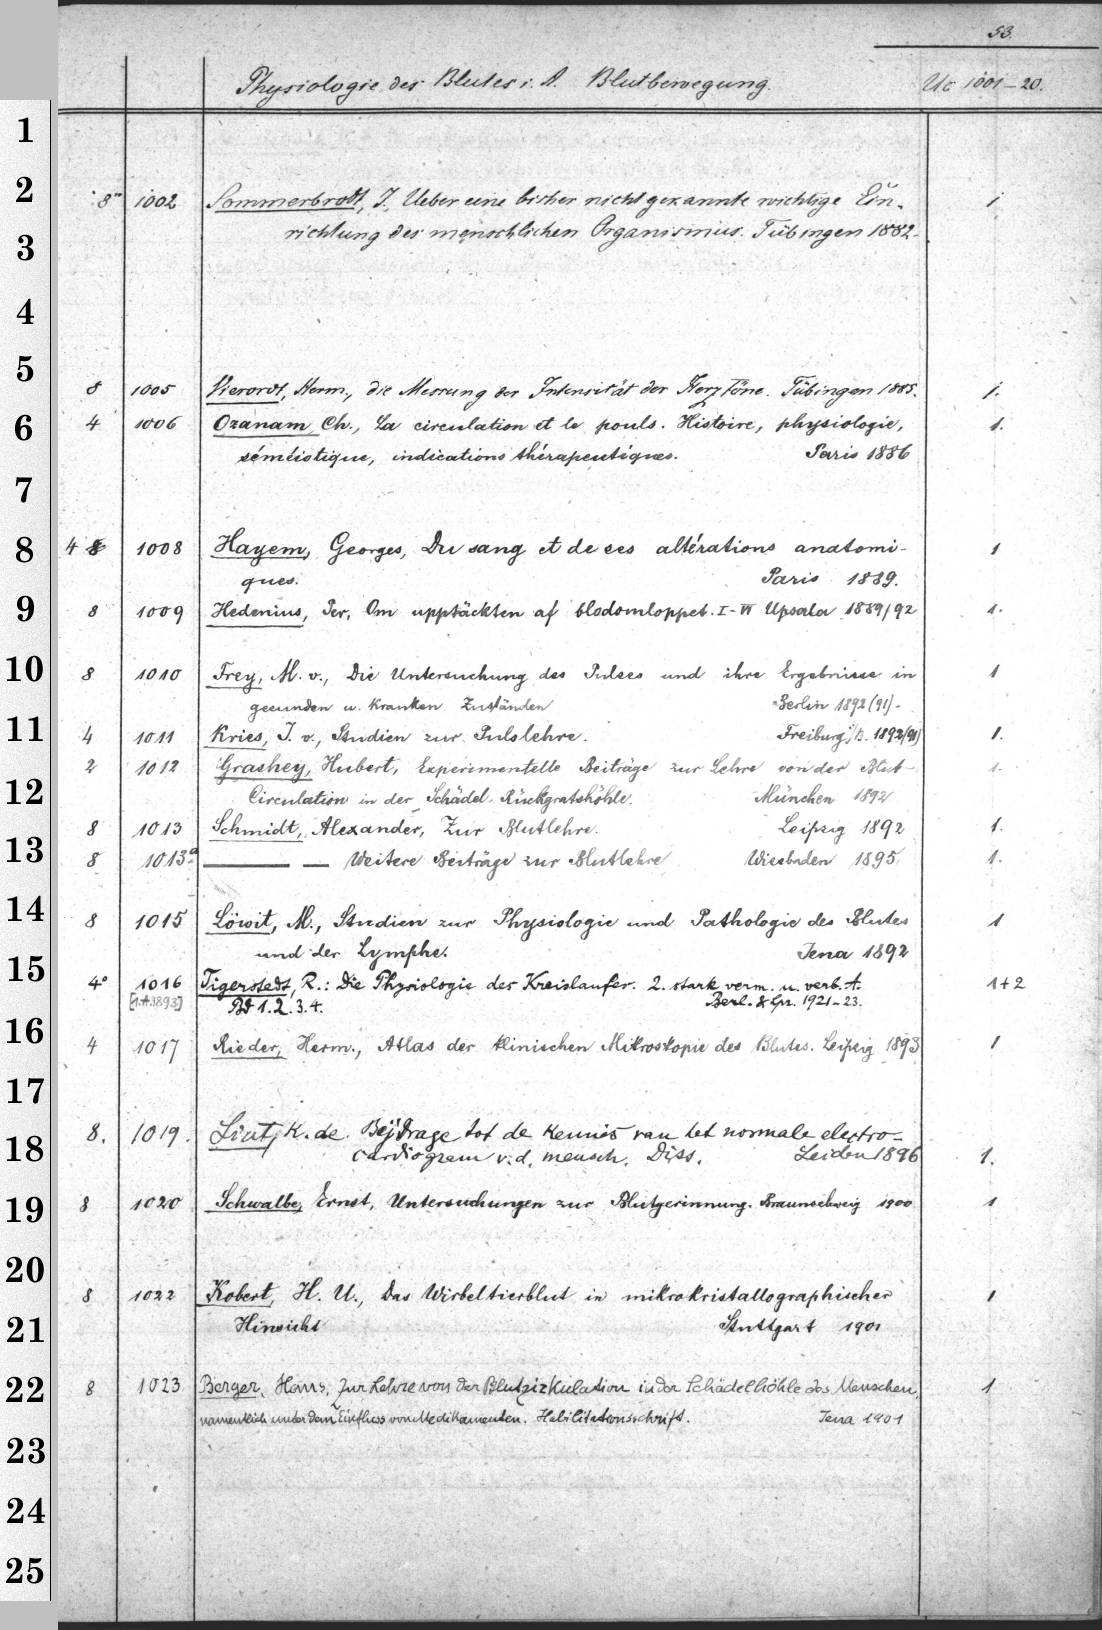 53.
Physiologie des Blutes i. A. Blutbewegung. Uc 1001-20.
1
2 8" 1002 Sommerbrodt, J. Ueber eine bisher nicht gekannte wichtige Ein-
3 richtung des menschlichen Organismus. Tübingen 1882.
4
5 8 1005 Vierordt, Herm., die Messung der Intensität der Herztöne. Tübingen 1885. 1.
6 4 1006 Ozanam, Ch., La circulation et le pouls. Histoire, physiologie, 1.
séméiotique, indications thérapeutiques. Paris 1886
7
8 4 8 1008 Hayem, Georges, Du sang et de ses altérations anatomi- 1
ques. Paris 1889.
9 8 1009 Hedenius, Per, Om upptäckten af blodomloppet. I-VI Upsala 1889/92 1.
10 8 1010 Frey, M. v., Die Untersuchung des Pulses und ihre Ergebnisse in 1
gesunden u. kranken Zuständen Berlin 1892(91).
11 4 1011 Kries, J. v., Studien zur Pulslehre. Freiburg i/B. 1892(91) 1.
2 1012 Grashey, Hubert, Experimentelle Beiträge zur Lehre von der Blut- 1.
12 Circulation in der Schädel-Rückgratshöhle. München 1892
8 1013 Schmidt, Alexander, Zur Blutlehre. Leipzig 1892 1.
13 8 1013a — — Weitere Beiträge zur Blutlehre Wiesbaden 1895. 1.
14 8 1015 Löwit, M., Studien zur Physiologie und Pathologie des Blutes 1
und der Lymphe. Jena 1892
15 4° 1016 Tigerstedt, R.: Die Physiologie des Kreislaufes. 2. stark verm. u. verb. A. 1+2
[1.A.1893] Bd 1.2.3.4. Berl. & Lpz. 1921-23.
16 4 1017 Rieder, Herm., Atlas der klinischen Mikroskopie des Blutes. Leipzig 1893 1
17
8. 1019. Lint, K. de. Beijdrage tot de kennis van het normale electro-
18 cardiogram v. d. mensch. Diss. Leiden 1896 1.
19 8 1020 Schwalbe, Ernst, Untersuchungen zur Blutgerinnung. Braunschweig 1900 1
20
8 1022 Kobert, H. U., Das Wirbeltierblut in mikrokristallographischer 1
21 Hinsicht Stuttgart 1901
22 8 1023 Berger, Hans, Zur Lehre von der Blutzirkulation in der Schädelhöhle des Menschen, 1
namentlich unter dem Einfluss von Medikamenten. Habilitationsschrift. Jena 1901
23
24
25